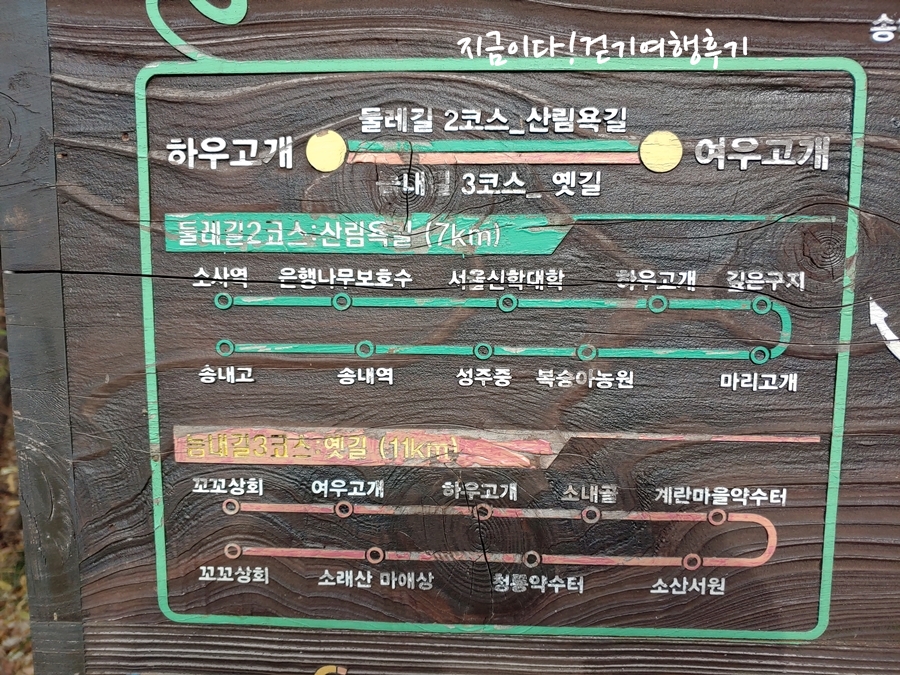 지금이다!걷기여행후기
송
둘레길 2코스_산림욕길
하우고개 여우고개
늠내길 3코스_ 옛길
둘레길2코스:산림욕길 (7km)
소사역 은행나무보호수 서울신학대학 하우고개 깊은구지
송내고 송내역 성주중 복숭아농원 마리고개
늠내길3코스:옛길 (11km)
꼬꼬상회 여우고개 하우고개 소내골 계란마을약수터
꼬꼬상회 소래산 마애상 청룡약수터 소산서원